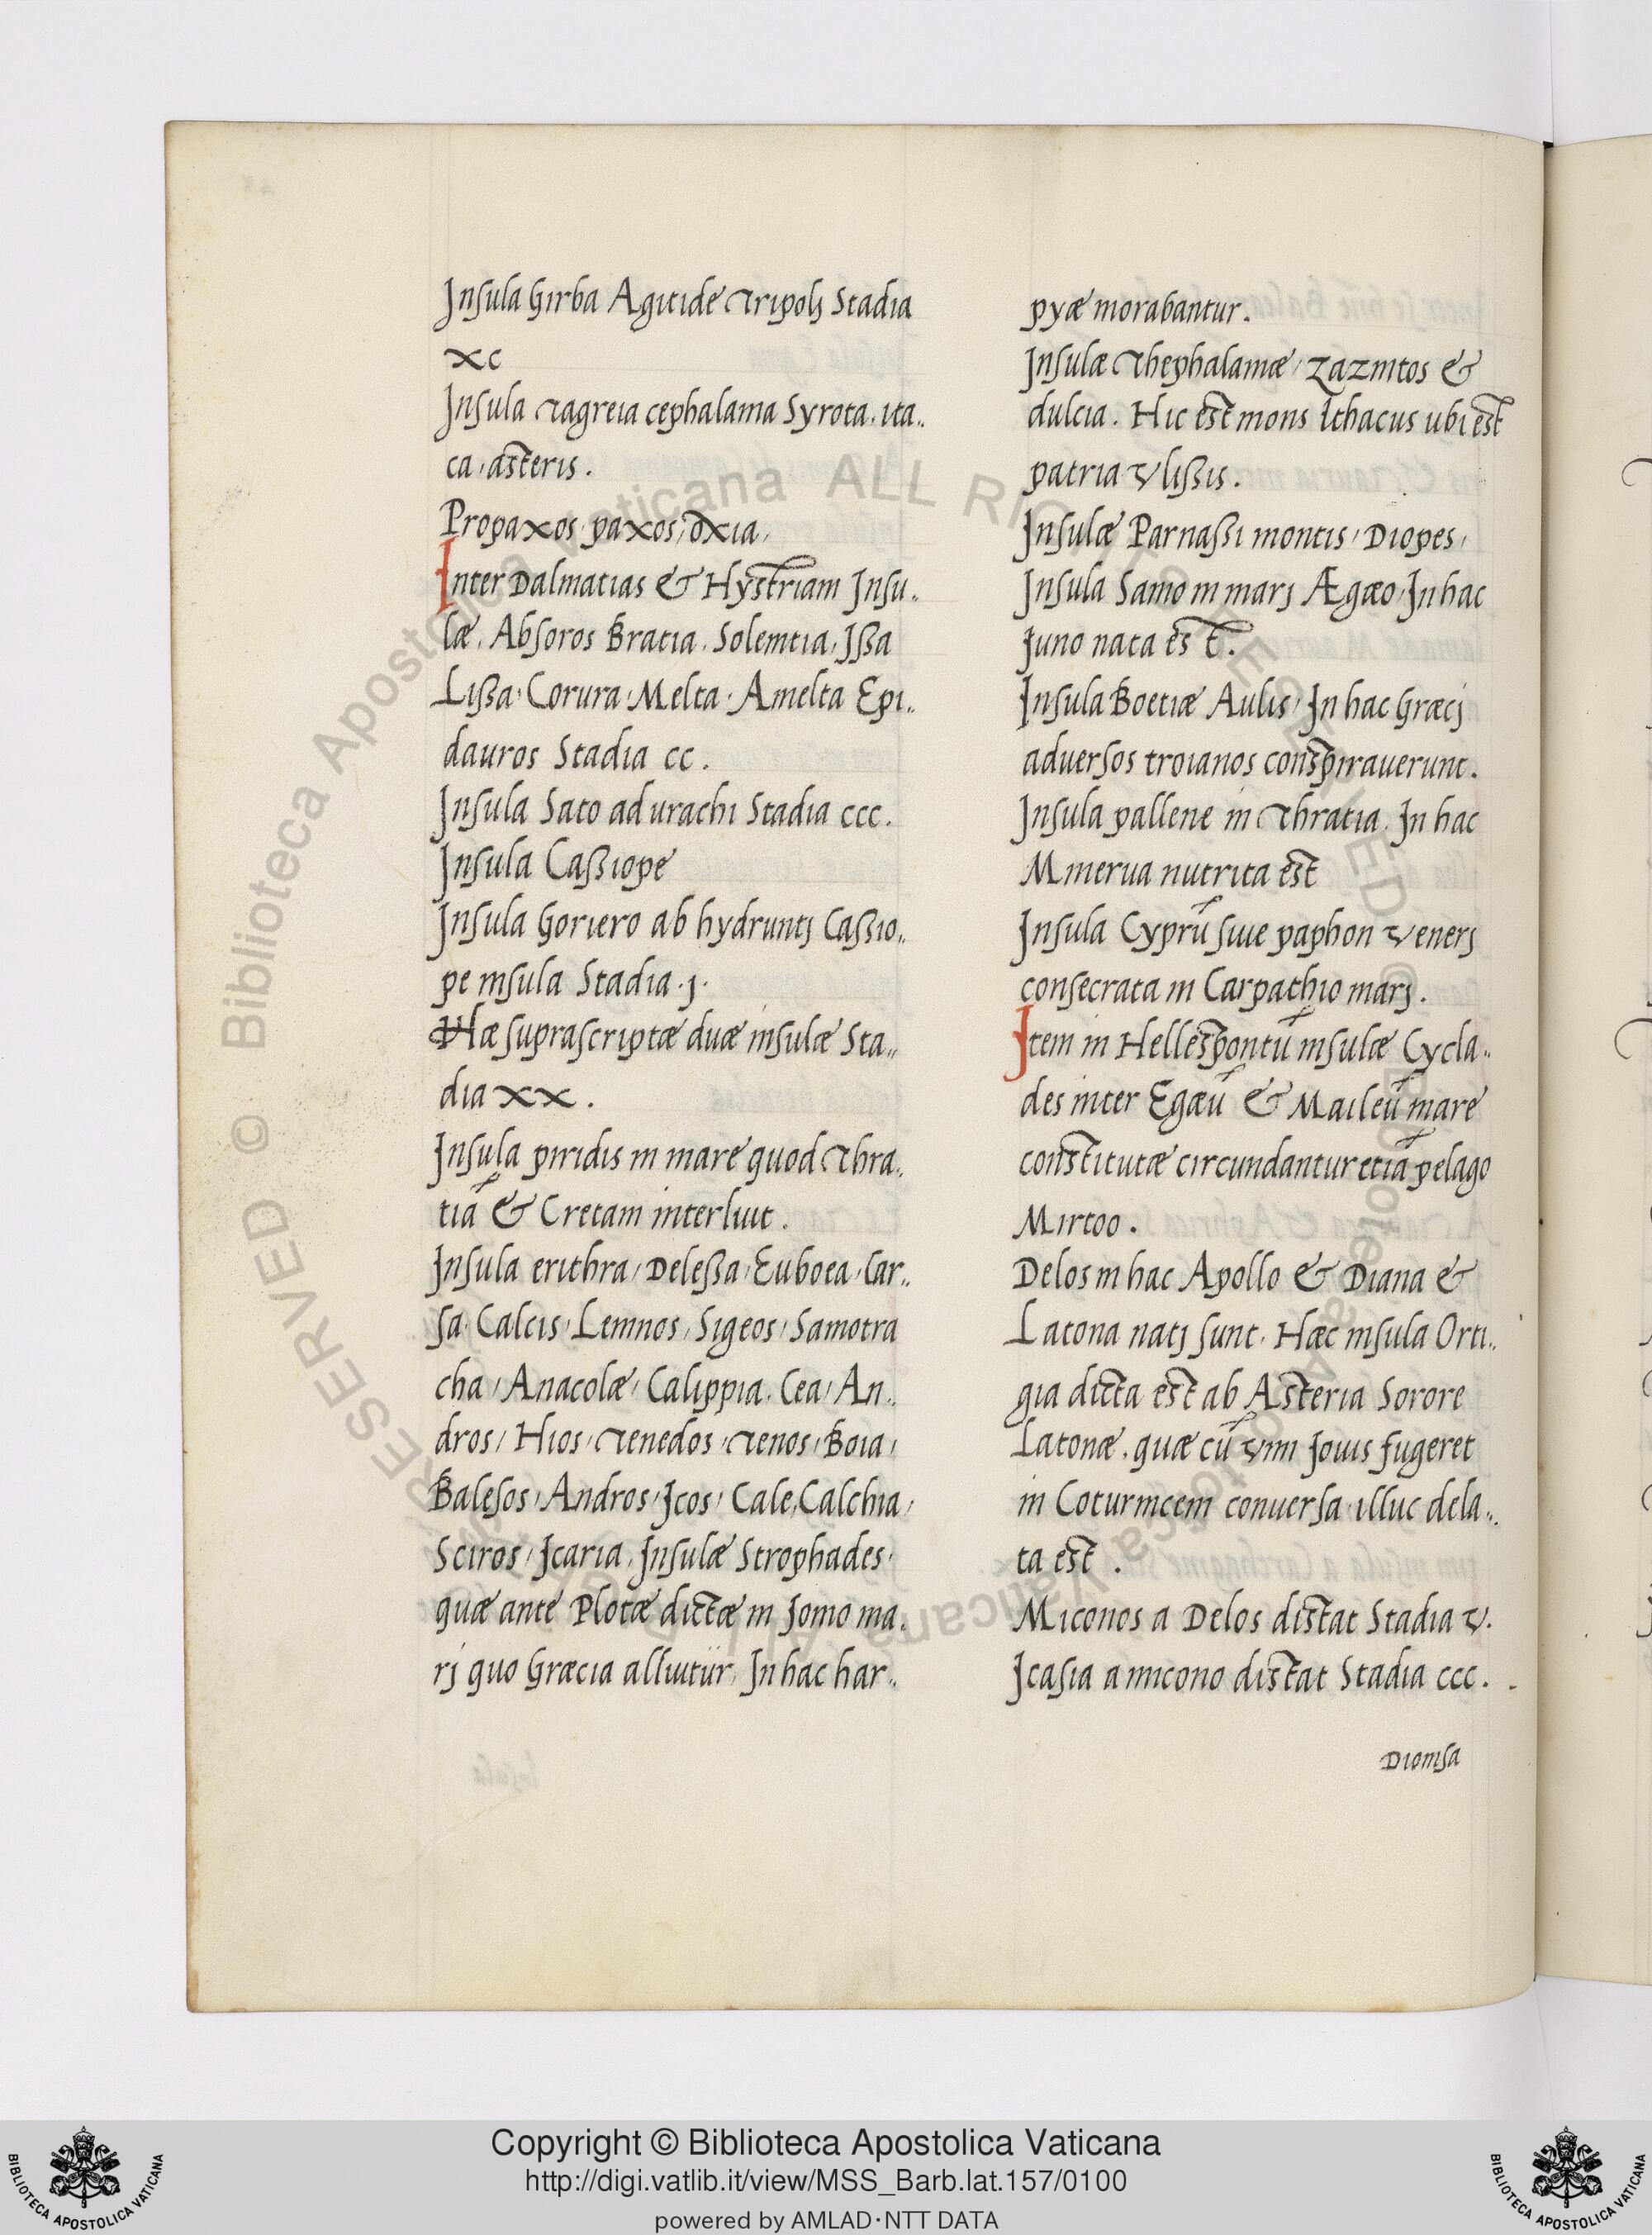 Insula Girba Agitide Tripolj Stadia
xc
Insula Tagreia cephalania Syrota, ita„
ca, asteris.
Propaxos, paxos, oxia,
Inter Dalmatias & Hystriam Insu„
læ, Absoros Bratia, Solentia, Issa
Lissa, Corura, Melta, Amelta Epi„
dauros Stadia cc.
Insula Sato ad urachi Stadia ccc.
Insula Cassiope
Insula Goriero ab hydruntj Cassio„
pe insula Stadia .j.
Hæ suprascriptæ duæ insulæ Sta„
dia xx.
Insula piridis in mare quod Thra„
tiā & Cretam interluit.
Insula erithra, Delessa, Euboea, Car„
sa, Calcis, Lemnos, Sigeos, Samotra
cha, Anacolæ, Calippia, Cea, An„
dros, Hios, Tenedos, Tenos, Boia,
Balesos, Andros, Icos, Cale, Calchia,
Sciros, Icaria, Insulæ Strophades,
quæ ante Plotæ dictæ in Jonio ma„
rj quo Græcia alluitur, In hac har„
pyæ morabantur.
Insulæ Thephalaniæ, Zazintos &
dulcia. Hic est mons Ithacus ubi est
patria Vlissis.
Insulæ Parnassi montis, Diopes,
Insula Samo in marj Ægæo, In hac
Juno nata est.
Insula Boetiæ Aulis, In hac Græcj
adversos troianos conspirauerunt.
Insula pallene in Thratia. In hac
Minerua nutrita est
Insula Cyprū siue paphon Venerj
consecrata in Carpathio marj.
Item in Hellespontū insulæ Cycla„
des inter Egæū & Maileū mare
constitutæ circundantur etiā pelago
Mirtoo.
Delos in hac Apollo & Diana &
Latona natj sunt. Hæc insula Orti„
gia dicta est ab Asteria Sorore
Latonæ, quæ cū Vim Jouis fugeret
in Coturnicem conuersa illuc dela„
ta est.
Miconos a Delos distat Stadia V.
Icasia a micono distat Stadia ccc.
Dionisa
Copyright © Biblioteca Apostolica Vaticana
http://digi.vatlib.it/view/MSS_Barb.lat.157/0100
powered by AMLAD·NTT DATA
BIBLIOTECA APOSTOLICA VATICANA
BIBLIOTECA APOSTOLICA VATICANA